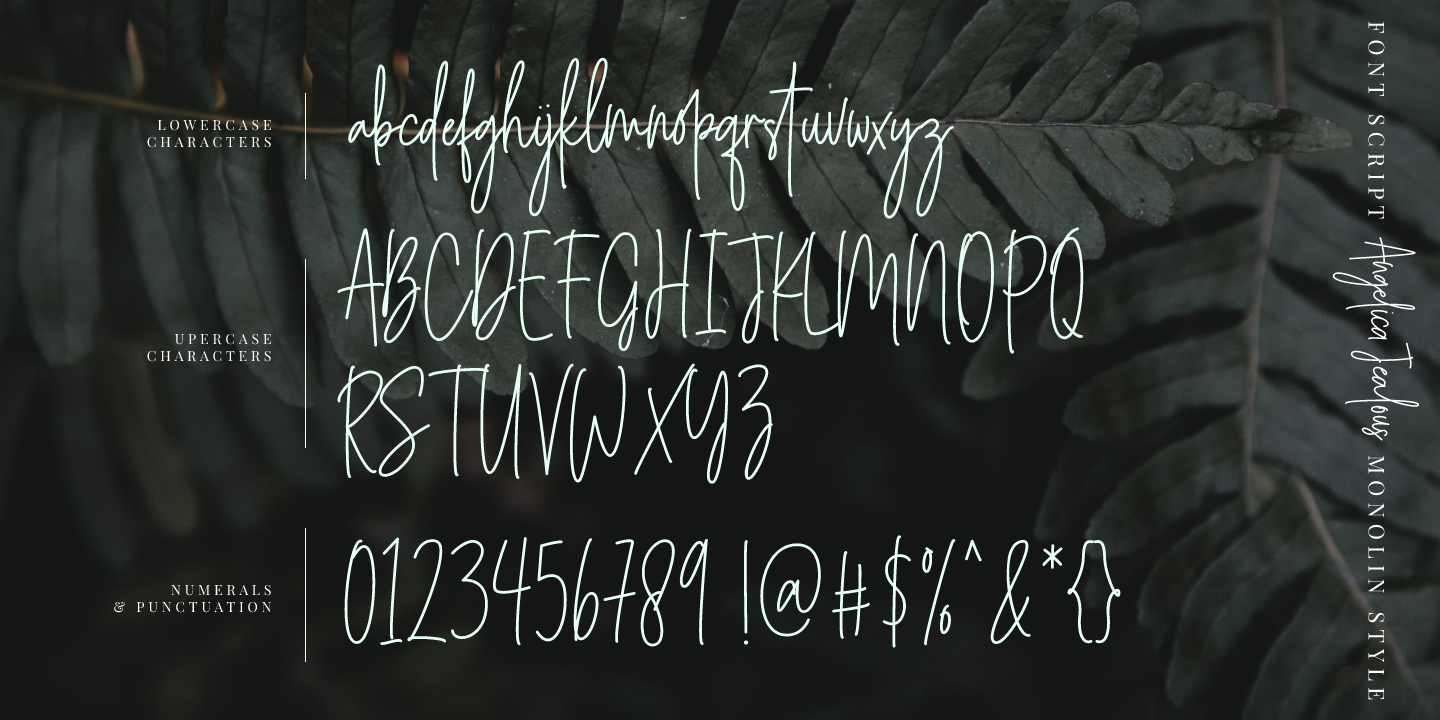 LOWERCASE
CHARACTERS
abcdefghijklmnopqrstuvwxyz
UPERCASE
CHARACTERS
ABCDEFGHIJKLMNOPQ
RSTUVWXYZ
NUMERALS
& PUNCTUATION
0123456789 !@#$%^&*{}
FONT SCRIPT Angelica Jealous MONOLIN STYLE